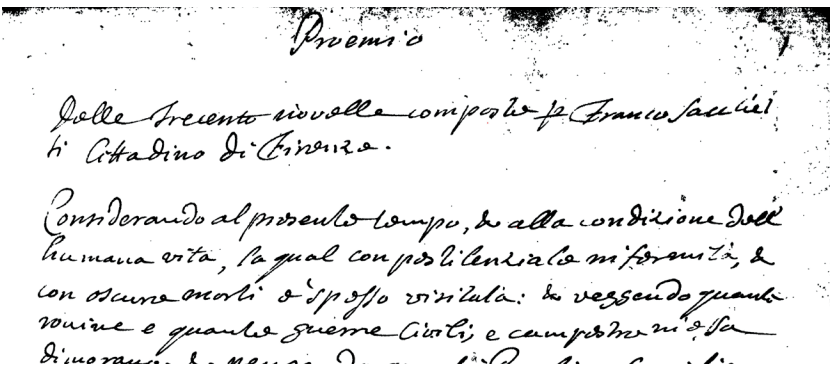 Proemio
Delle trecento novelle composte p Franco Sacchet
ti Cittadino di Firenze.
Considerando al presente tempo, & alla condizione dell'
humana vita, la qual con pestilenziale infermità, &
con oscure morti è spesso visitata: & veggendo quante
rovine e quante guerre Civili, e campestre in essa
dimorano